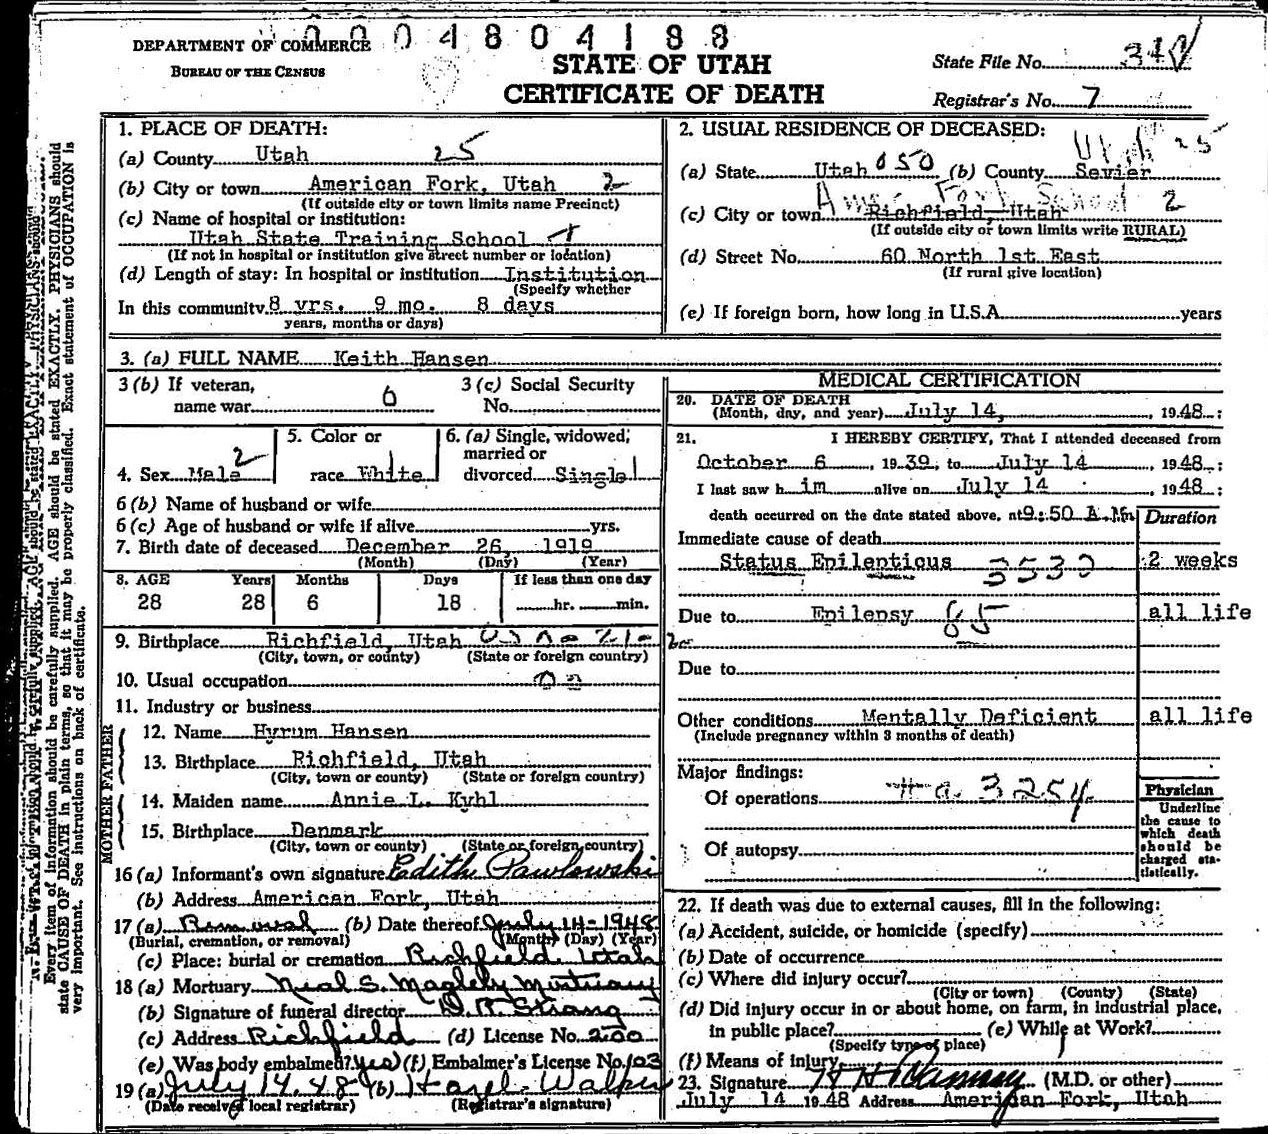 0004804188
DEPARTMENT OF COMMERCE
BUREAU OF THE CENSUS
STATE OF UTAH
CERTIFICATE OF DEATH
State File No.
Registrar's No. 7
Every item of information should be carefully supplied. AGE should be stated EXACTLY. PHYSICIANS should
state CAUSE OF DEATH in plain terms, so that it may be properly classified. Exact statement of OCCUPATION is
very important. See instructions on back of certificate.
1. PLACE OF DEATH:
(a) County Utah 25
(b) City or town American Fork, Utah 2
(If outside city or town limits name Precinct)
(c) Name of hospital or institution:
Utah State Training School
(If not in hospital or institution give street number or location)
(d) Length of stay: In hospital or institution Institution
(Specify whether
In this community 8 yrs. 9 mo. 8 days
years, months or days)
2. USUAL RESIDENCE OF DECEASED:
Utah 25
(a) State Utah 050 (b) County Sevier
Amer Fork School 2
(c) City or town Richfield, Utah
(If outside city or town limits write RURAL)
(d) Street No. 60 North 1st East
(If rural give location)
(e) If foreign born, how long in U.S.A. years
3. (a) FULL NAME Keith Hansen
3 (b) If veteran, name war 0
3 (c) Social Security No.
4. Sex Male 2
5. Color or race White
6. (a) Single, widowed, married or divorced Single 1
6 (b) Name of husband or wife
6 (c) Age of husband or wife if alive yrs.
7. Birth date of deceased December 26, 1919
(Month) (Day) (Year)
8. AGE Years Months Days If less than one day
28 28 6 18 hr. min.
9. Birthplace Richfield, Utah
(City, town, or county) (State or foreign country)
10. Usual occupation
11. Industry or business
FATHER
12. Name Hyrum Hansen
13. Birthplace Richfield, Utah
(City, town or county) (State or foreign country)
MOTHER
14. Maiden name Annie L. Kyhl
15. Birthplace Denmark
(City, town or county) (State or foreign country)
16 (a) Informant's own signature Edith Pawlowski
(b) Address American Fork, Utah
17 (a) Removal (b) Date thereof July 14-1948
(Burial, cremation, or removal) (Month) (Day) (Year)
(c) Place: burial or cremation Richfield Utah
18 (a) Mortuary Neal S. Magleby Mortuary
(b) Signature of funeral director D. R. Strang
(c) Address Richfield (d) License No. 200
(e) Was body embalmed? Yes (f) Embalmer's License No. 103
19 (a) July 14 48 (b) Hazel Walker
(Date received local registrar) (Registrar's signature)
MEDICAL CERTIFICATION
20. DATE OF DEATH
(Month, day, and year) July 14, 1948;
21. I HEREBY CERTIFY, That I attended deceased from
October 6, 1939, to July 14, 1948;
I last saw him alive on July 14, 1948;
death occurred on the date stated above, at 9:50 A.M.
Duration
Immediate cause of death
Status Epilepticus 3530 2 weeks
Due to Epilepsy 85 all life
Due to
Other conditions Mentally Deficient all life
(Include pregnancy within 3 months of death)
Major findings:
Of operations 3254
Of autopsy
Physician
Underline the cause to which death should be charged statistically.
22. If death was due to external causes, fill in the following:
(a) Accident, suicide, or homicide (specify)
(b) Date of occurrence
(c) Where did injury occur?
(City or town) (County) (State)
(d) Did injury occur in or about home, on farm, in industrial place,
in public place? (e) While at Work?
(Specify type of place)
(f) Means of injury
23. Signature H H Ramsay (M.D. or other)
July 14 1948 Address American Fork, Utah